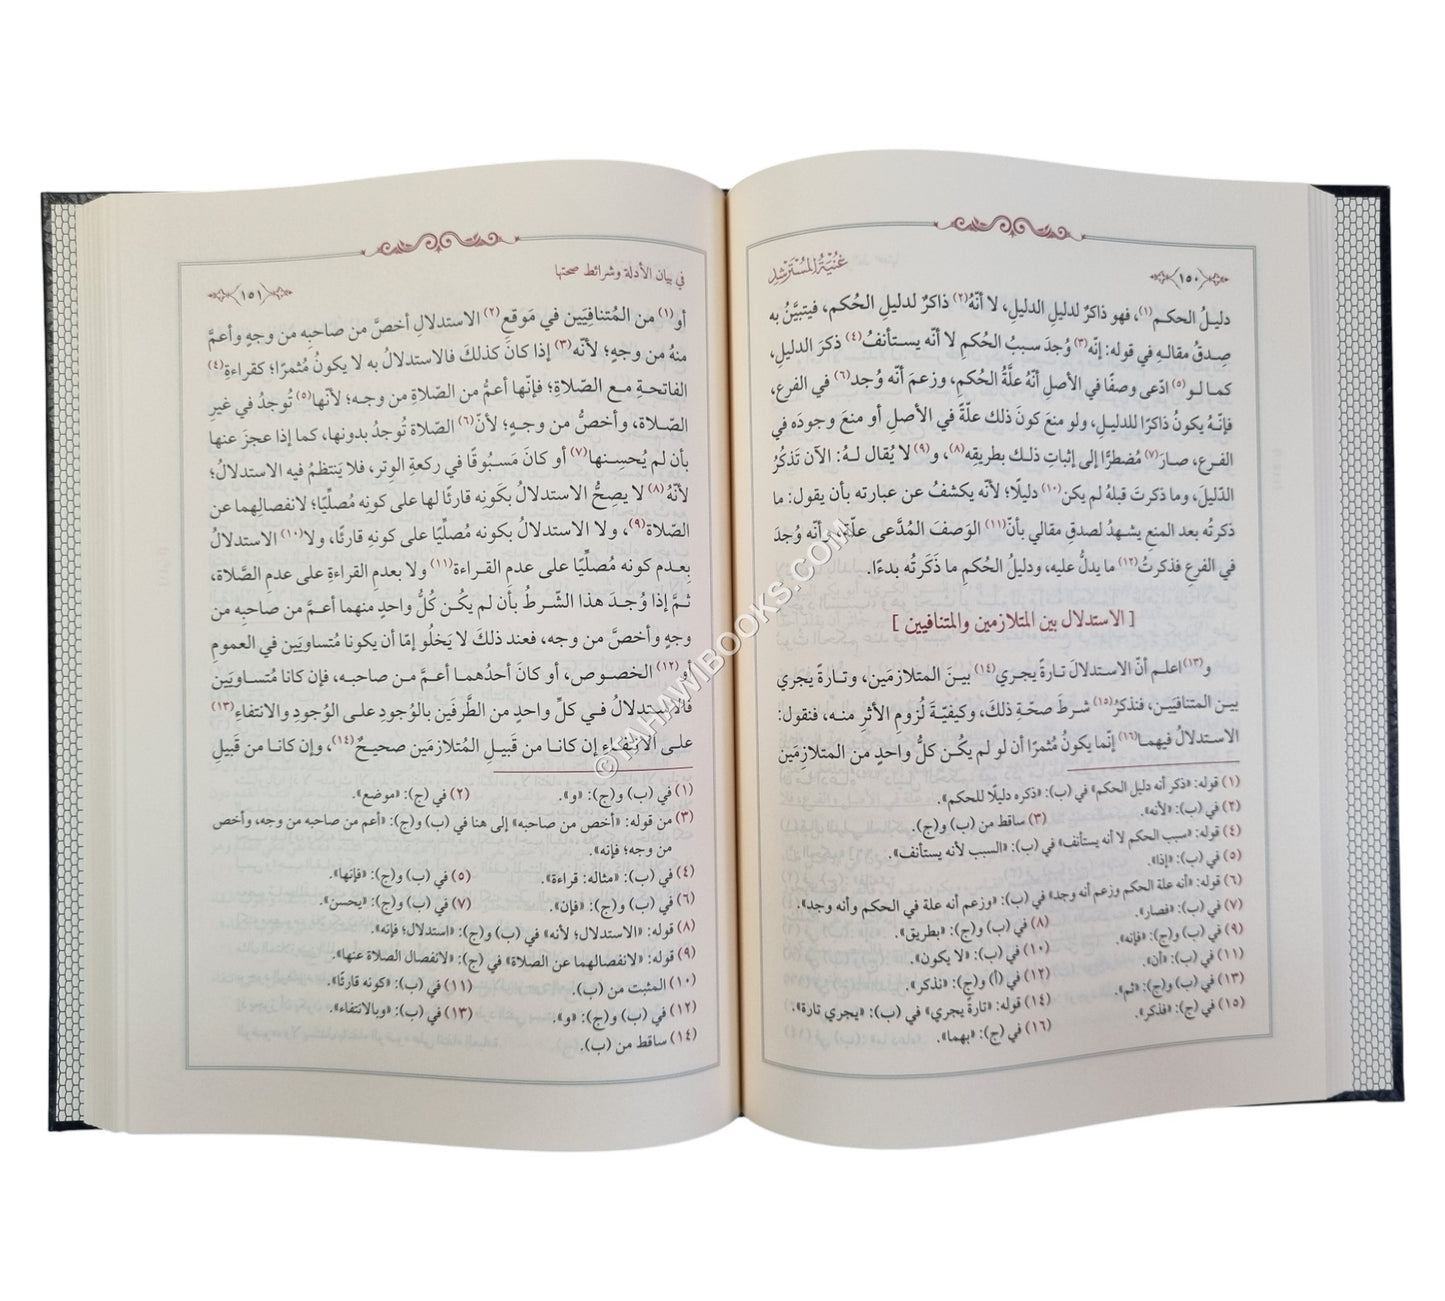 ١٥٠
غُنْيَةُ المُسْتَرْشِد
دليلُ الحكم(١)، فهو ذاكرٌ لدليلِ الدليلِ، لا أنّهُ(٢) ذاكرٌ لدليلِ الحُكم، فيتبيَّنُ به
صِدقُ مقالهِ في قوله: إنّه(٣) وُجدَ سببُ الحُكمِ لا أنّه يستأنفُ(٤) ذكرَ الدليلِ،
كما لو(٥) ادّعى وصفًا في الأصلِ أنّهُ علَّةُ الحُكمِ، وزعمَ أنّه وُجد(٦) في الفرع،
فإنّهُ يكونُ ذاكرًا للدليلِ، ولو منعَ كونَ ذلك علّةً في الأصلِ أو منعَ وجودَه في
الفرع، صارَ(٧) مُضطرًّا إلى إثباتِ ذلك بطريقِه(٨)، و(٩) لا يُقال لهُ: الآن تَذكُرُ
الدّليلَ، وما ذكرتَ قبلهُ لم يكن(١٠) دليلًا؛ لأنّه يكشفُ عن عبارته بأن يقول: ما
ذكرتُه بعد المنعِ يشهدُ لصدقِ مقالي بأنّ(١١) الوَصفَ المُدَّعى علّته، وأنّه وُجدَ
في الفرعِ فذكرتُ(١٢) ما يدلُّ عليه، ودليلُ الحُكمِ ما ذَكَرتُه بدءًا.
[ الاستدلال بين المتلازمين والمتنافيين ]
و(١٣) اعلم أنّ الاستدلالَ تارةً يجري(١٤) بينَ المتلازمَين، وتارةً يجري
بين المتنافيَين، فنذكرُ(١٥) شرطَ صحّةِ ذلك، وكيفيّةَ لُزومِ الأثرِ منه، فنقول:
الاستدلالُ فيهما(١٦) إنّما يكونُ مُثمرًا أن لو لم يكُن كلُّ واحدٍ من المتلازِمَين
(١) قوله: «ذكر أنه دليل الحكم» في (ب): «ذكره دليلًا للحكم».
(٢) في (ب): «لأنه».
(٣) ساقط من (ب) و(ج).
(٤) قوله: «سبب الحكم لا أنه يستأنف» في (ب): «السبب لأنه يستأنف».
(٥) في (ب): «إذا».
(٦) قوله: «أنه علة الحكم وزعم أنه وجد» في (ب): «وزعم أنه علة في الحكم وأنه وجد».
(٧) في (ب): «فصار».
(٨) في (ب) و(ج): «بطريق».
(٩) في (ب) و(ج): «فإنه».
(١٠) في (ب): «لا يكون».
(١١) في (ب): «أن».
(١٢) في (أ) و(ج): «نذكر».
(١٣) في (ب) و(ج): «ثم».
(١٤) قوله: «تارةً يجري» في (ب): «يجري تارة».
(١٥) في (ج): «فذكر».
(١٦) في (ج): «بهما».
في بيان الأدلة وشرائط صحتها
١٥١
أو(١) من المُتنافِيَين في مَوقعِ(٢) الاستدلالِ أخصَّ من صاحبِه من وجهٍ وأعمَّ
منهُ من وجهٍ؛ لأنّه(٣) إذا كانَ كذلكَ فالاستدلالُ به لا يكونُ مُثمرًا؛ كقراءةِ(٤)
الفاتحةِ مع الصّلاةِ؛ فإنّها أعمُّ من الصّلاةِ من وجه؛ لأنّها(٥) تُوجدُ في غيرِ
الصّلاة، وأخصُّ من وجهٍ؛ لأنّ(٦) الصّلاة تُوجدُ بدونها، كما إذا عجزَ عنها
بأن لم يُحسِنها(٧) أو كانَ مَسبُوقًا في ركعةِ الوِترِ، فلا يَنتظمُ فيه الاستدلالُ؛
لأنّهُ(٨) لا يصحُّ الاستدلالُ بكَونِه قارئًا لها على كونِه مُصلِّيًا؛ لانفصالِهما عن
الصّلاة(٩)، ولا الاستدلالُ بكونه مُصلِّيًا على كونهِ قارئًا، ولا(١٠) الاستدلالُ
بِعدمِ كونه مُصلِّيًا على عدمِ القراءة(١١) ولا بعدمِ القراءةِ على عدمِ الصّلاة،
ثمَّ إذا وُجدَ هذا الشّرطُ بأن لم يكُن كُلُّ واحدٍ منهما أعمَّ من صاحبِه من
وجهٍ وأخصَّ من وجه، فعند ذلكَ لا يَخلُو إمّا أن يكونا مُتساويَين في العمومِ
أو(١٢) الخصوص، أو كانَ أحدُهما أعمَّ من صاحبه، فإن كانا مُتساويَين
فالاستدلالُ في كلِّ واحدٍ من الطَّرفَين بالوُجودِ على الوُجودِ والانتفاء(١٣)
على الانتفاءِ إن كانا من قَبيلِ المُتلازمَين صحيحٌ(١٤)، وإن كانا من قَبيلِ
(١) في (ب) و(ج): «و».
(٢) في (ج): «موضع».
(٣) من قوله: «أخص من صاحبه» إلى هنا في (ب) و(ج): «أعم من صاحبه من وجه، وأخص
من وجه؛ فإنه».
(٤) في (ب): «مثاله: قراءة».
(٥) في (ب) و(ج): «فإنها».
(٦) في (ب) و(ج): «فإن».
(٧) في (ب) و(ج): «يحسن».
(٨) قوله: «الاستدلال؛ لأنه» في (ب) و(ج): «استدلال؛ فإنه».
(٩) قوله: «لانفصالهما عن الصلاة» في (ج): «لانفصال الصلاة عنها».
(١٠) المثبت من (ب).
(١١) في (ب): «كونه قارئًا».
(١٢) في (ب) و(ج): «و».
(١٣) في (ب): «وبالانتفاء».
(١٤) ساقط من (ب).
© TAHAWIBOOKS.COM